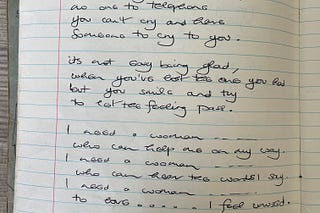 no one to telephone
you can't cry and have
someone to cry to you.
its not easy being glad,
when you've lost the one you had
but you smile and try
to let the feeling pass.
I need a woman -----
who can help me on my way.
I need a woman -----
who can hear the words I say.
I need a woman -----
to love ..... I feel unwed.